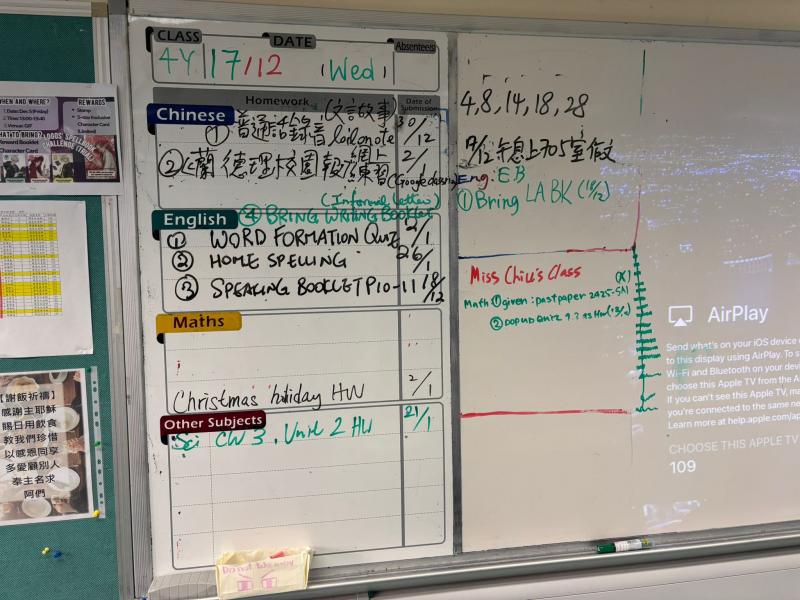 CLASS
DATE
Absentees
4Y
17/12
(Wed)
Homework
Date of Submission
Chinese
(文言故事)
① 普通話錄音
30/12
②
蘭德理校園報
網上
練習
2/1
(Informal Letter)
English
④ BRING WRITING BOOKLET
① WORD FORMATION QUIZ
2/1
② HOME SPELLING
26/1
③ SPEAKING BOOKLET P10-11
18/12
Maths
Christmas holiday HW
2/1
Other Subjects
Sci CW 3, Unit 2 HW
21/1
4,8,14,18,28
Eng: EB
① Bring LA BK (18/12)
Miss Chiu's Class
Math ① given: pastpaper
AirPlay
Send what's on your iOS device
to this display using AirPlay.
Wi-Fi and Bluetooth on your
choose this Apple TV from the
If you can't see this Apple TV,
you're connected to the same
Learn more at help.apple.com/
CHOOSE THIS APPLE TV
109
WHEN AND WHERE?
REWARDS
Reward Booklet
Character Card
【謝飯祈禱】
感謝主耶穌
賜日用飲食
教我們珍惜
以感恩同享
多愛顧別人
奉主名求
阿們